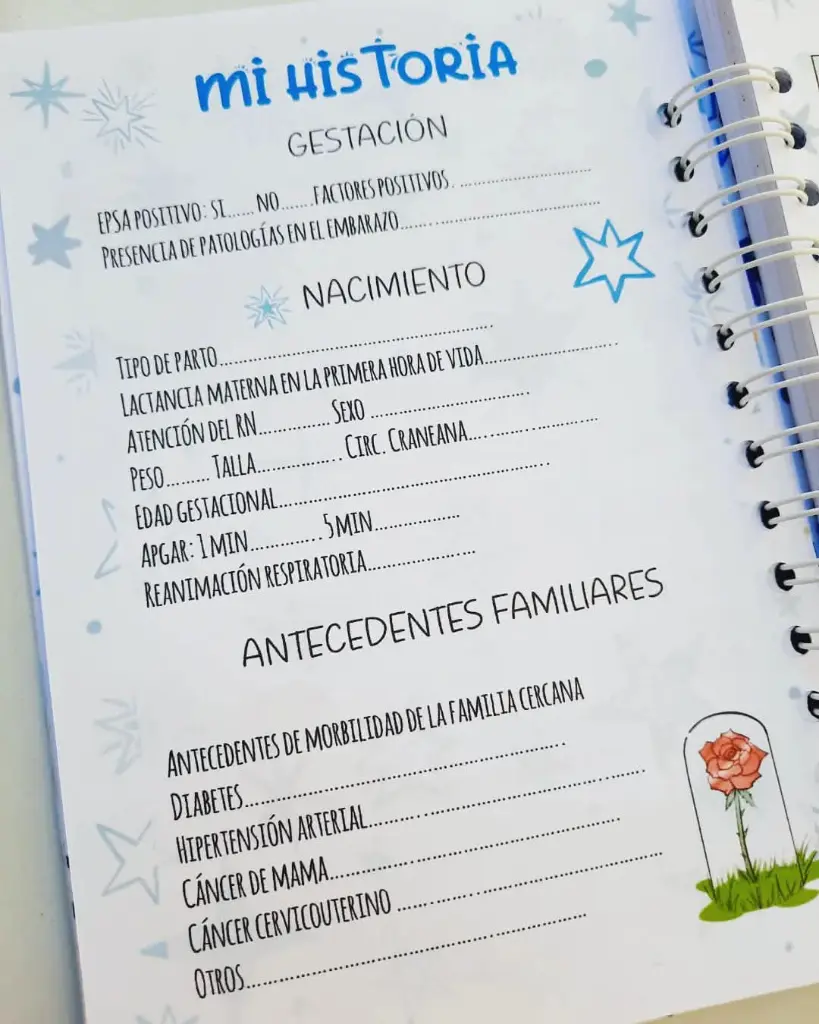 Mi HisToRiA
GESTACIÓN
EPSA POSITIVO: SI...... NO...... FACTORES POSITIVOS. ..............................
PRESENCIA DE PATOLOGÍAS EN EL EMBARAZO..............................................
NACIMIENTO
TIPO DE PARTO..............................................................
LACTANCIA MATERNA EN LA PRIMERA HORA DE VIDA..............................
ATENCIÓN DEL RN............... SEXO ....................................
PESO......... TALLA................. CIRC. CRANEANA..........................
EDAD GESTACIONAL............................................................
APGAR: 1 MIN.............. 5 MIN..................
REANIMACIÓN RESPIRATORIA........................
ANTECEDENTES FAMILIARES
ANTECEDENTES DE MORBILIDAD DE LA FAMILIA CERCANA
DIABETES..............................................................
HIPERTENSIÓN ARTERIAL......................................................
CÁNCER DE MAMA............................................................
CÁNCER CERVICOUTERINO ....................................................
OTROS....................................................................